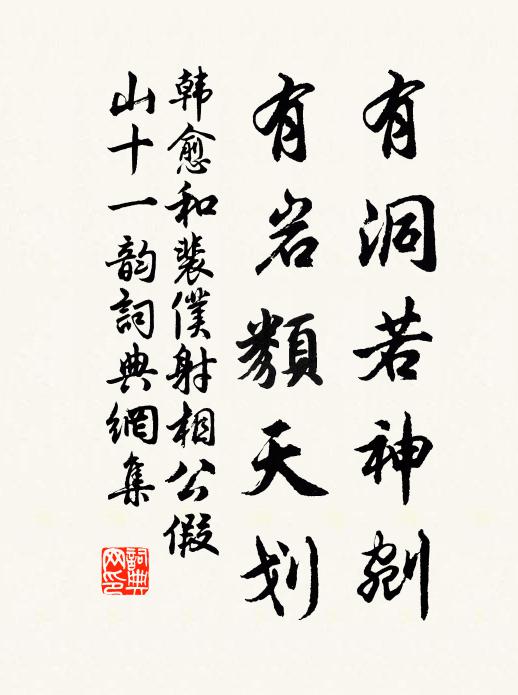 有洞若神剜
有岩類天划
韩愈和裴僕射相公假
山十一韵詞典網集
詞典網印